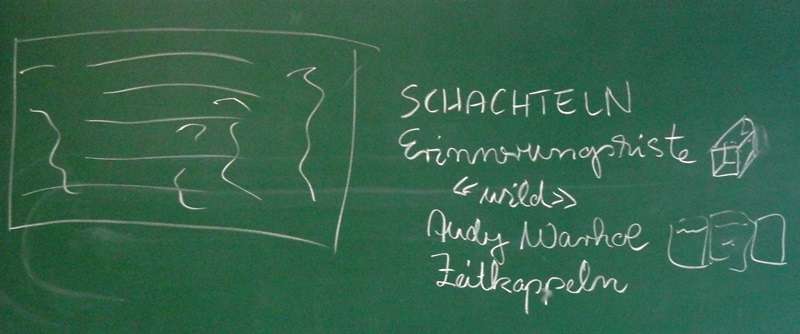 SCHACHTELN
Erinnerungskiste
«wild»
Andy Warhol
Zeitkappeln